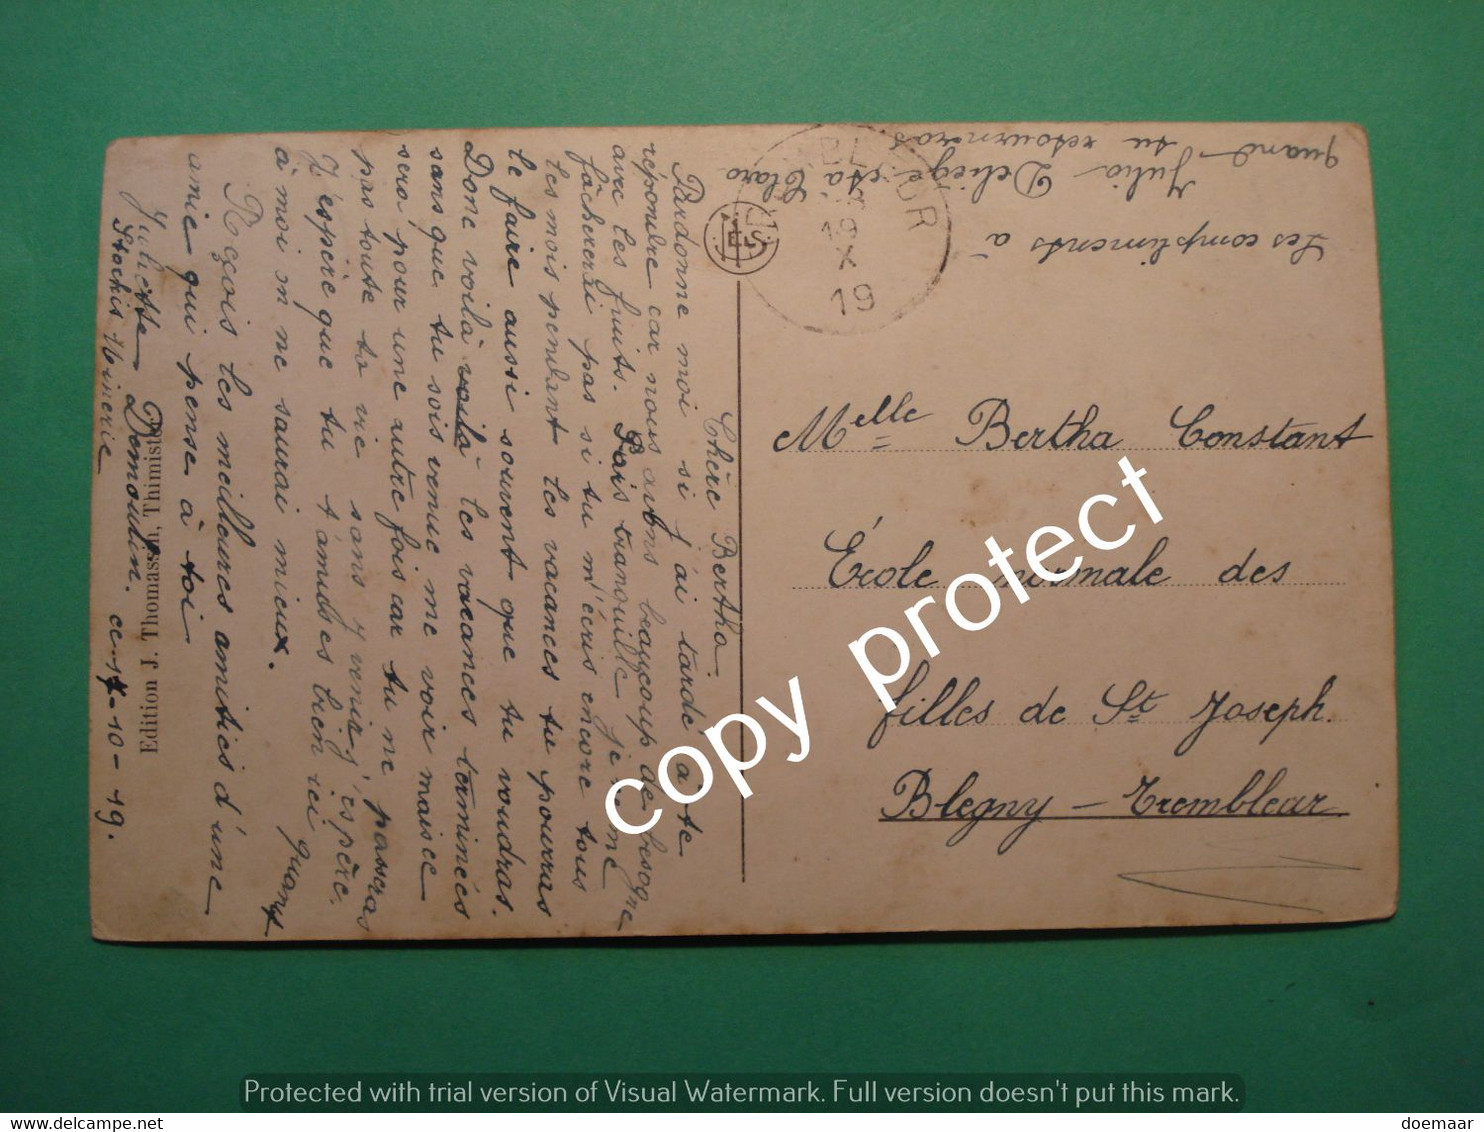 Chère Bertha.
Pardonne moi si j'ai tardé a te
répondre car nous avons beaucoup de besogne
avec les fruits. Sois tranquille je ne me
fâchererai pas si tu m'écris encore tous
les mois pendant les vacances tu pourras
le faire aussi souvent que tu voudras.
Donc voilà voilà les vacances terminées
sans que tu sois venue me voir mais ce
sera pour une autre fois car tu ne passeras
pas toute ta vie sans y venir j'espère.
J'espère que tu t'amuses bien ici quant
à moi on ne saurai mieux.
Reçois les meilleures amitiés d'une
amie qui pense à toi
Juliette Demoulin.
Stockis Hinerie ce 17-10-19.
Edition J. Thomassin, Thimister
NELS
19
X
19
Les compliments à
Julia Deliège et a Clara
quand tu retourneras
Melle Bertha Constant
École normale des
filles de St Joseph.
Blegny - Trembleur
copy protect
Protected with trial version of Visual Watermark. Full version doesn't put this mark.
doemaar